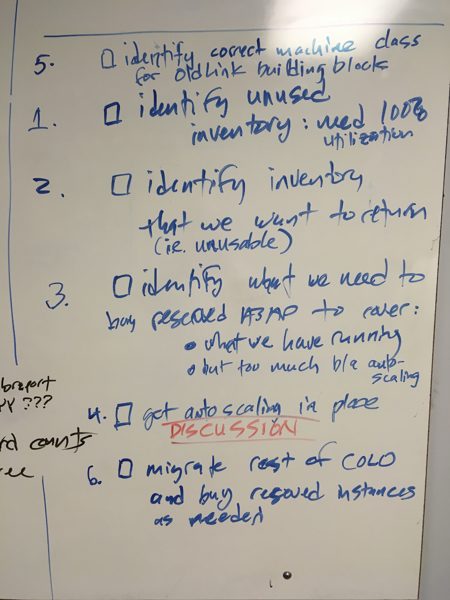 5. □ identify correct machine class
for oldlink building blocks
1. □ identify unused
inventory: need 100%
utilization
2. □ identify inventory
that we want to return
(ie. unusable)
3. □ identify what we need to
buy reserved ASAP to cover:
• what we have running
• but too much b/c auto-
scaling
4. □ get autoscaling in place
DISCUSSION
6. □ migrate rest of COLO
and buy reserved instances
as needed
???
counts